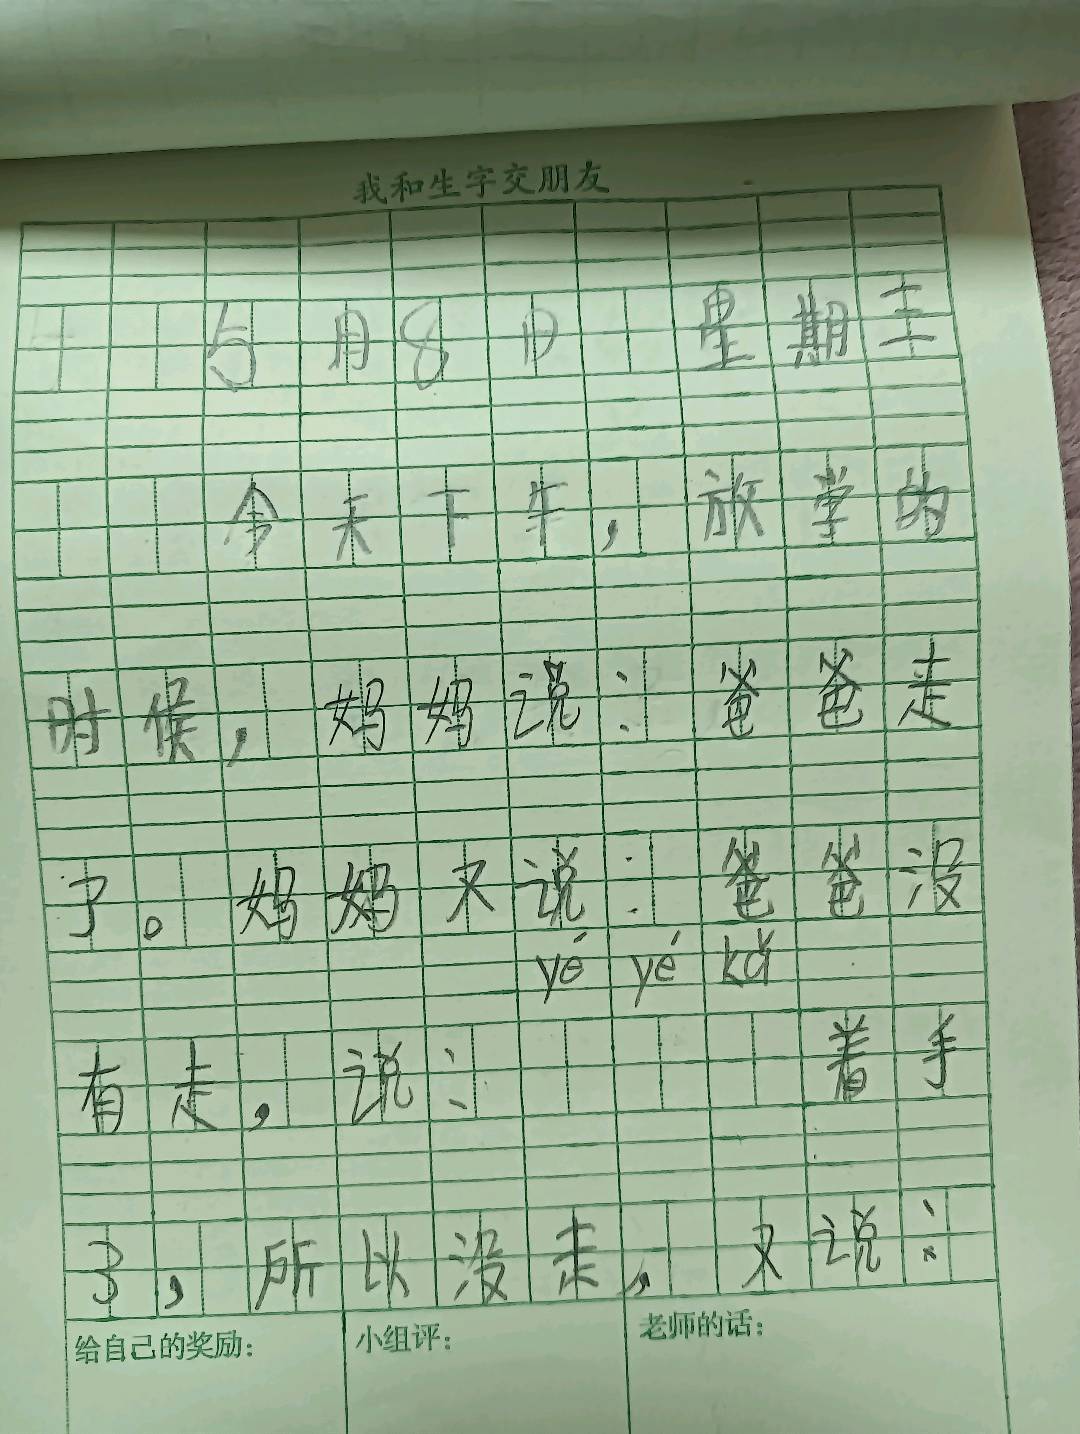 我和生字交朋友
5月8日 星期三
今天下午，放学的
时候，妈妈说：爸爸走
了。妈妈又说：爸爸没
yé yé kǎ
有走，说： 着手
了，所以没走，又说：
给自己的奖励： 小组评： 老师的话：